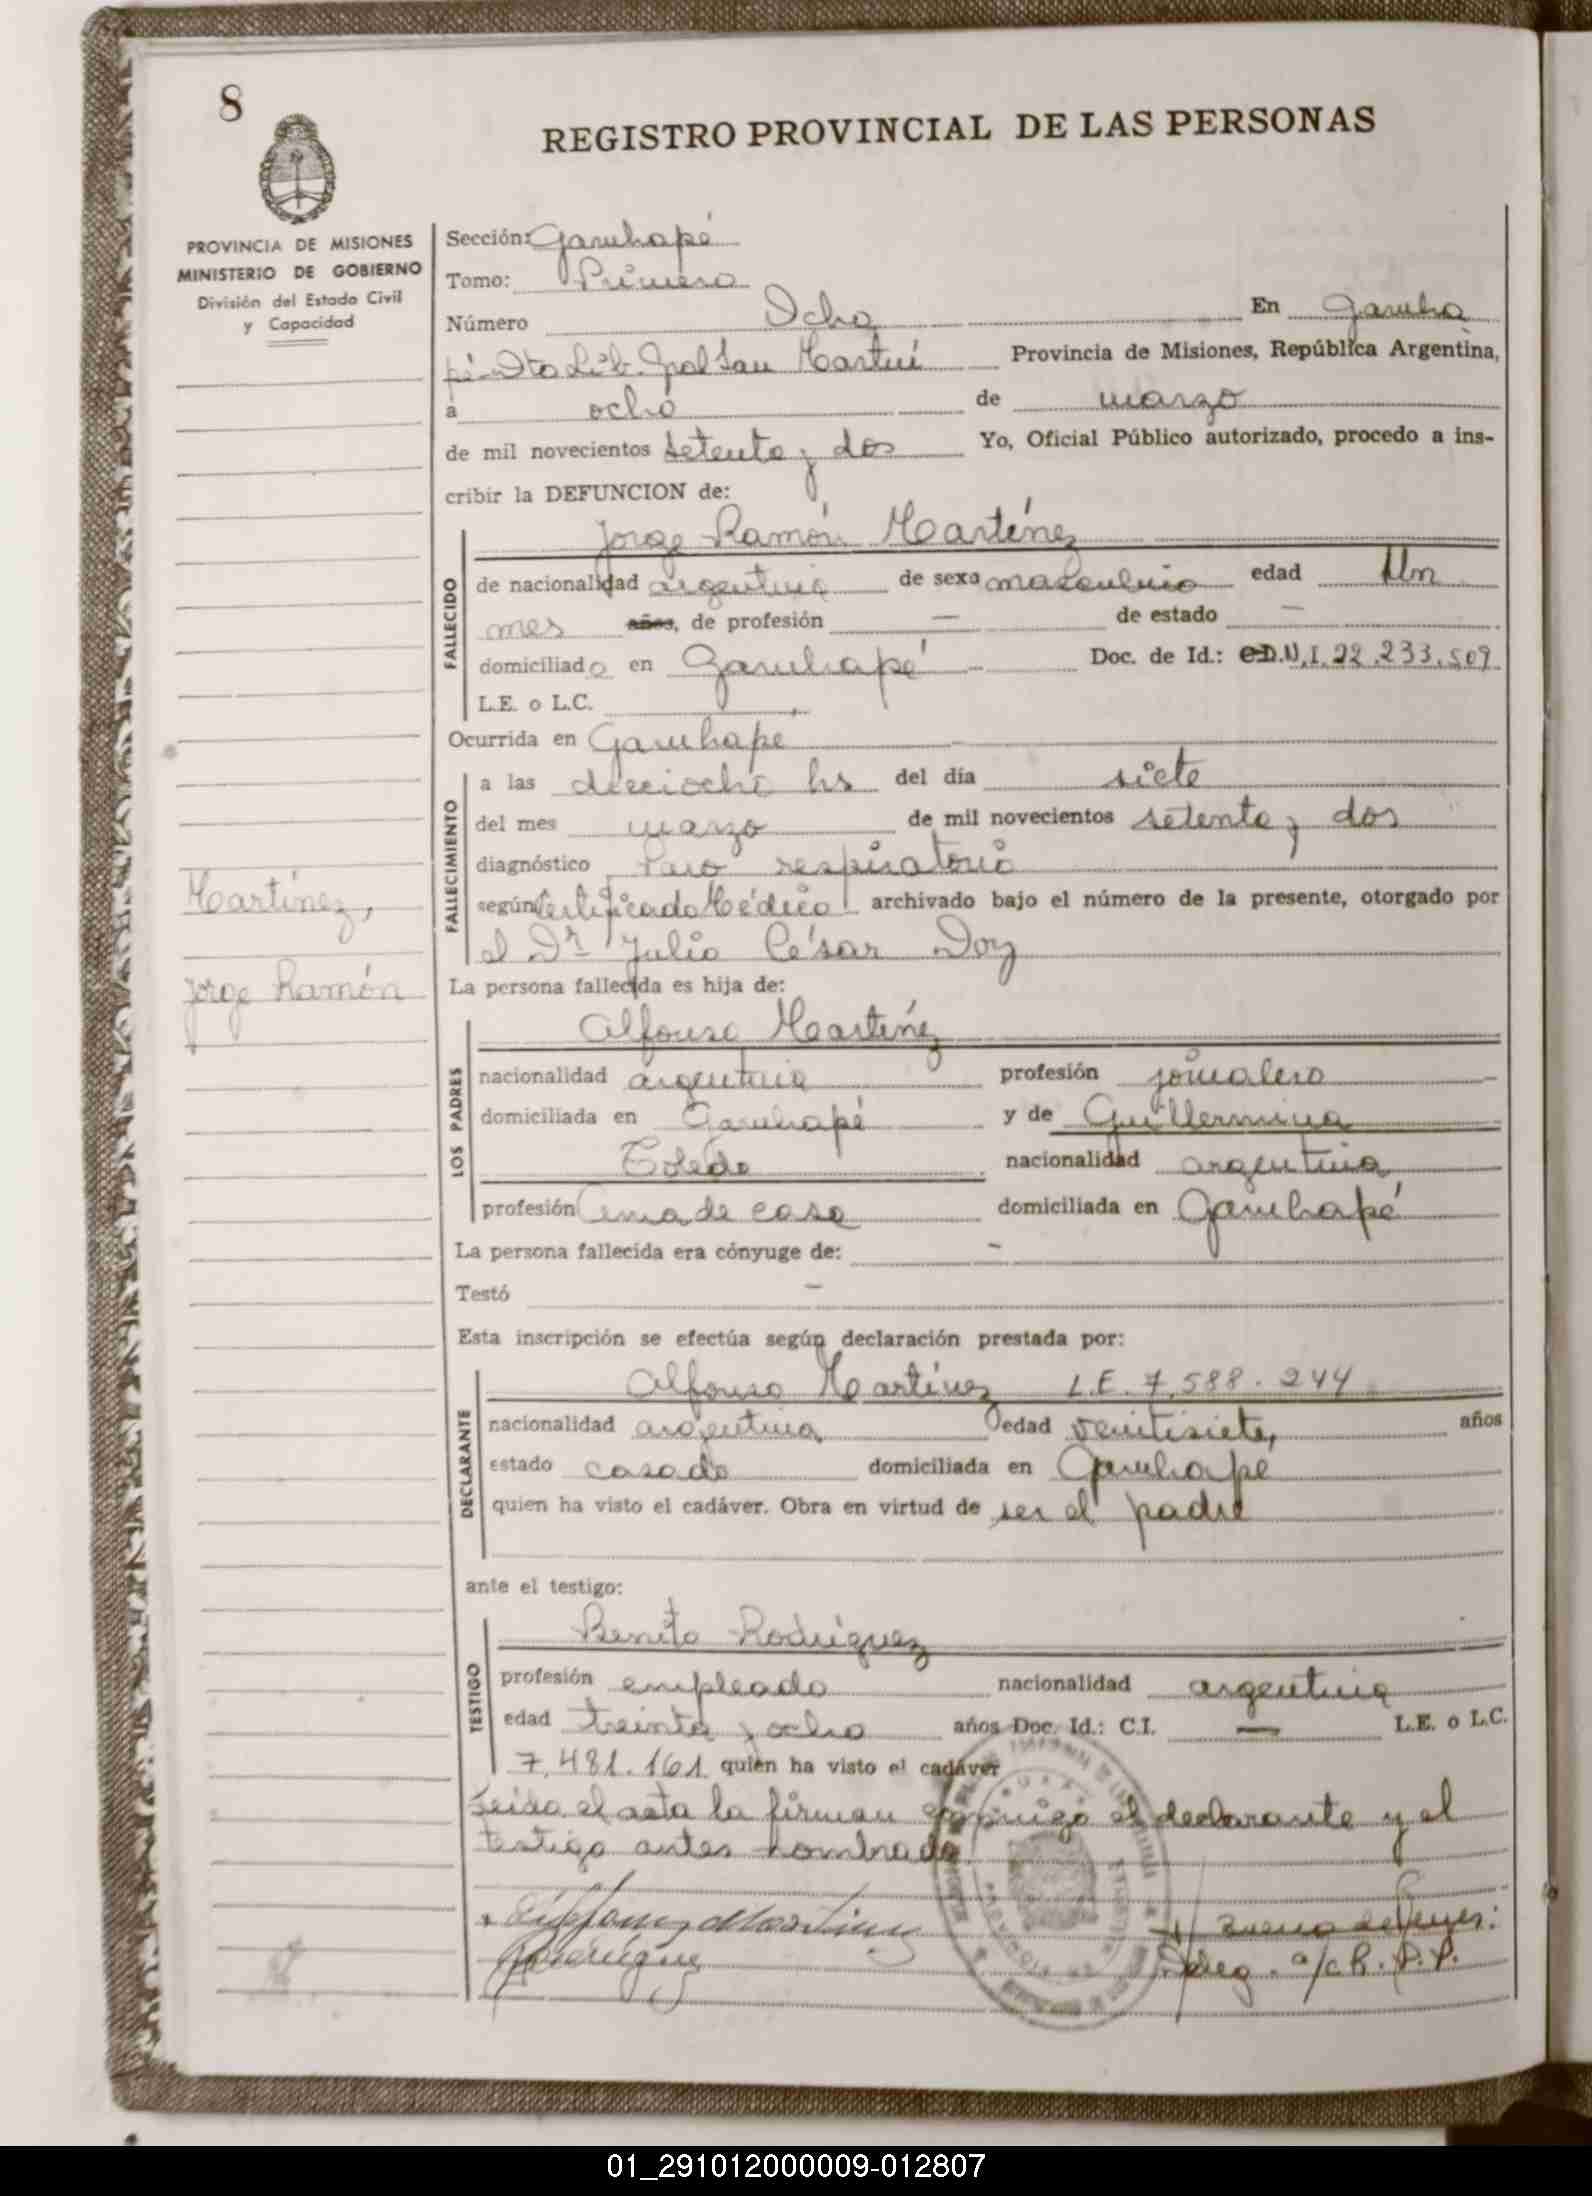 8
REGISTRO PROVINCIAL DE LAS PERSONAS
PROVINCIA DE MISIONES
MINISTERIO DE GOBIERNO
División del Estado Civil
y Capacidad
Sección: Garuhapé
Tomo: Primero
Número Ocho En Garuha
pé-Dto Lib. Gral San Martín Provincia de Misiones, República Argentina,
a ocho de marzo
de mil novecientos setenta y dos Yo, Oficial Público autorizado, procedo a ins-
cribir la DEFUNCION de:
Jorge Ramón Martínez
FALLECIDO
de nacionalidad argentina de sexo masculino edad Un
mes años, de profesión — de estado —
domiciliado en Garuhapé Doc. de Id.: D.N.I. 22.233.509
L.E. o L.C.
Ocurrida en Garuhapé
FALLECIMIENTO
a las dieciocho hs del día siete
del mes marzo de mil novecientos setenta y dos
diagnóstico Paro respiratorio
según Certificado Médico archivado bajo el número de la presente, otorgado por
el Dr Julio César Doy
Martínez,
Jorge Ramón
La persona fallecida es hija de:
Alfonso Martínez
LOS PADRES
nacionalidad argentina profesión jornalero
domiciliada en Garuhapé y de Guillermina
Toledo nacionalidad argentina
profesión Ama de casa domiciliada en Garuhapé
La persona fallecida era cónyuge de: —
Testó —
Esta inscripción se efectúa según declaración prestada por:
Alfonso Martínez L.E. 7.588.244
DECLARANTE
nacionalidad argentina edad veintisiete, años
estado casado domiciliada en Garuhapé
quien ha visto el cadáver. Obra en virtud de ser el padre
ante el testigo:
Benito Rodríguez
TESTIGO
profesión empleado nacionalidad argentina
edad treinta y ocho años Doc. Id.: C.I. — L.E. o L.C.
7.481.161 quien ha visto el cadáver
Leida el acta la firman conmigo el declarante y el
testigo antes nombrado.
01_291012000009-012807